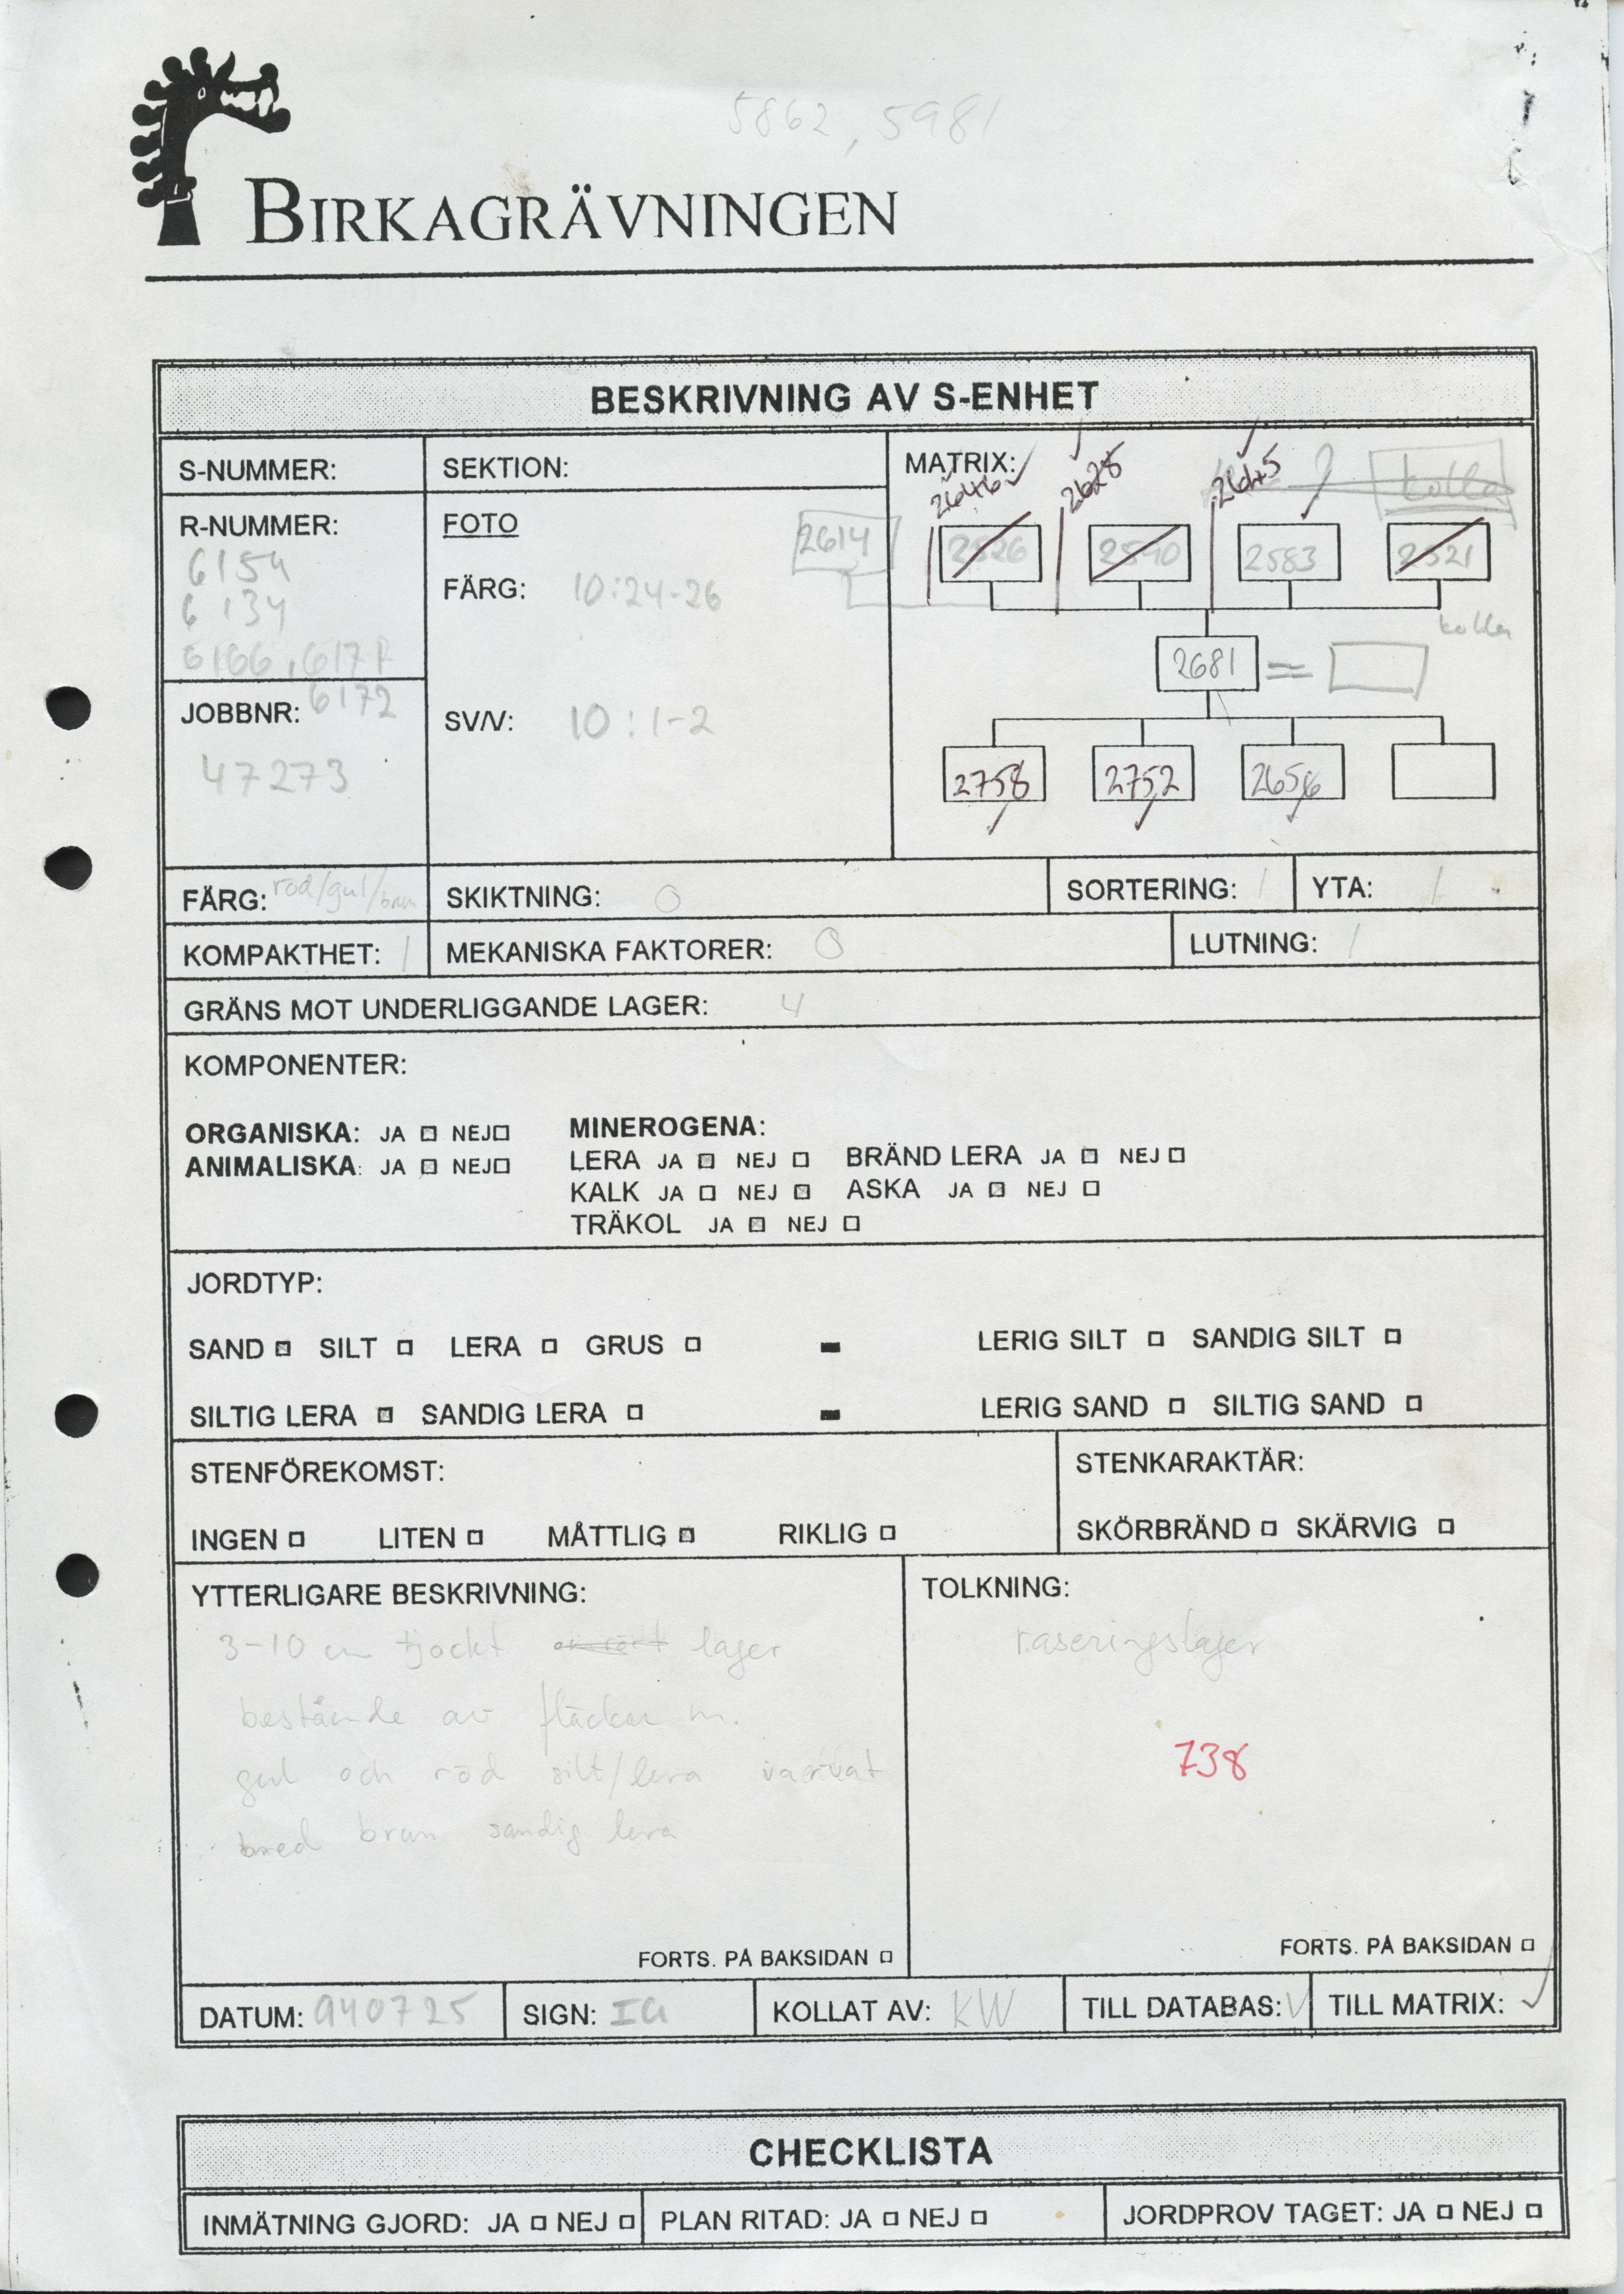 5862, 5981
BIRKAGRÄVNINGEN
BESKRIVNING AV S-ENHET
S-NUMMER:
SEKTION:
MATRIX:
2646 2628 2645 kolla
R-NUMMER:
6154
6134
6166, 617
6172
FOTO
FÄRG: 10:24-26
SV/V: 10:1-2
2614 2526 2583 2521
kolla
2681 =
2758 2752 2656
JOBBNR:
47273
FÄRG: röd/gul/brun SKIKTNING: 0 SORTERING: 1 YTA: 1
KOMPAKTHET: 1 MEKANISKA FAKTORER: 0 LUTNING: 1
GRÄNS MOT UNDERLIGGANDE LAGER: 4
KOMPONENTER:
ORGANISKA: JA NEJ MINEROGENA:
ANIMALISKA: JA NEJ LERA JA NEJ BRÄND LERA JA NEJ
KALK JA NEJ ASKA JA NEJ
TRÄKOL JA NEJ
JORDTYP:
SAND SILT LERA GRUS - LERIG SILT SANDIG SILT
SILTIG LERA SANDIG LERA - LERIG SAND SILTIG SAND
STENFÖREKOMST: STENKARAKTÄR:
INGEN LITEN MÅTTLIG RIKLIG SKÖRBRÄND SKÄRVIG
YTTERLIGARE BESKRIVNING:
3-10 cm tjockt omrört lager
bestående av fläckar m.
gul och röd silt/lera varvat
med brun sandig lera
FORTS. PÅ BAKSIDAN
TOLKNING:
raseringslager
738
FORTS. PÅ BAKSIDAN
DATUM: 940725 SIGN: IG KOLLAT AV: KW TILL DATABAS: V TILL MATRIX: ✓
CHECKLISTA
INMÄTNING GJORD: JA NEJ PLAN RITAD: JA NEJ JORDPROV TAGET: JA NEJ